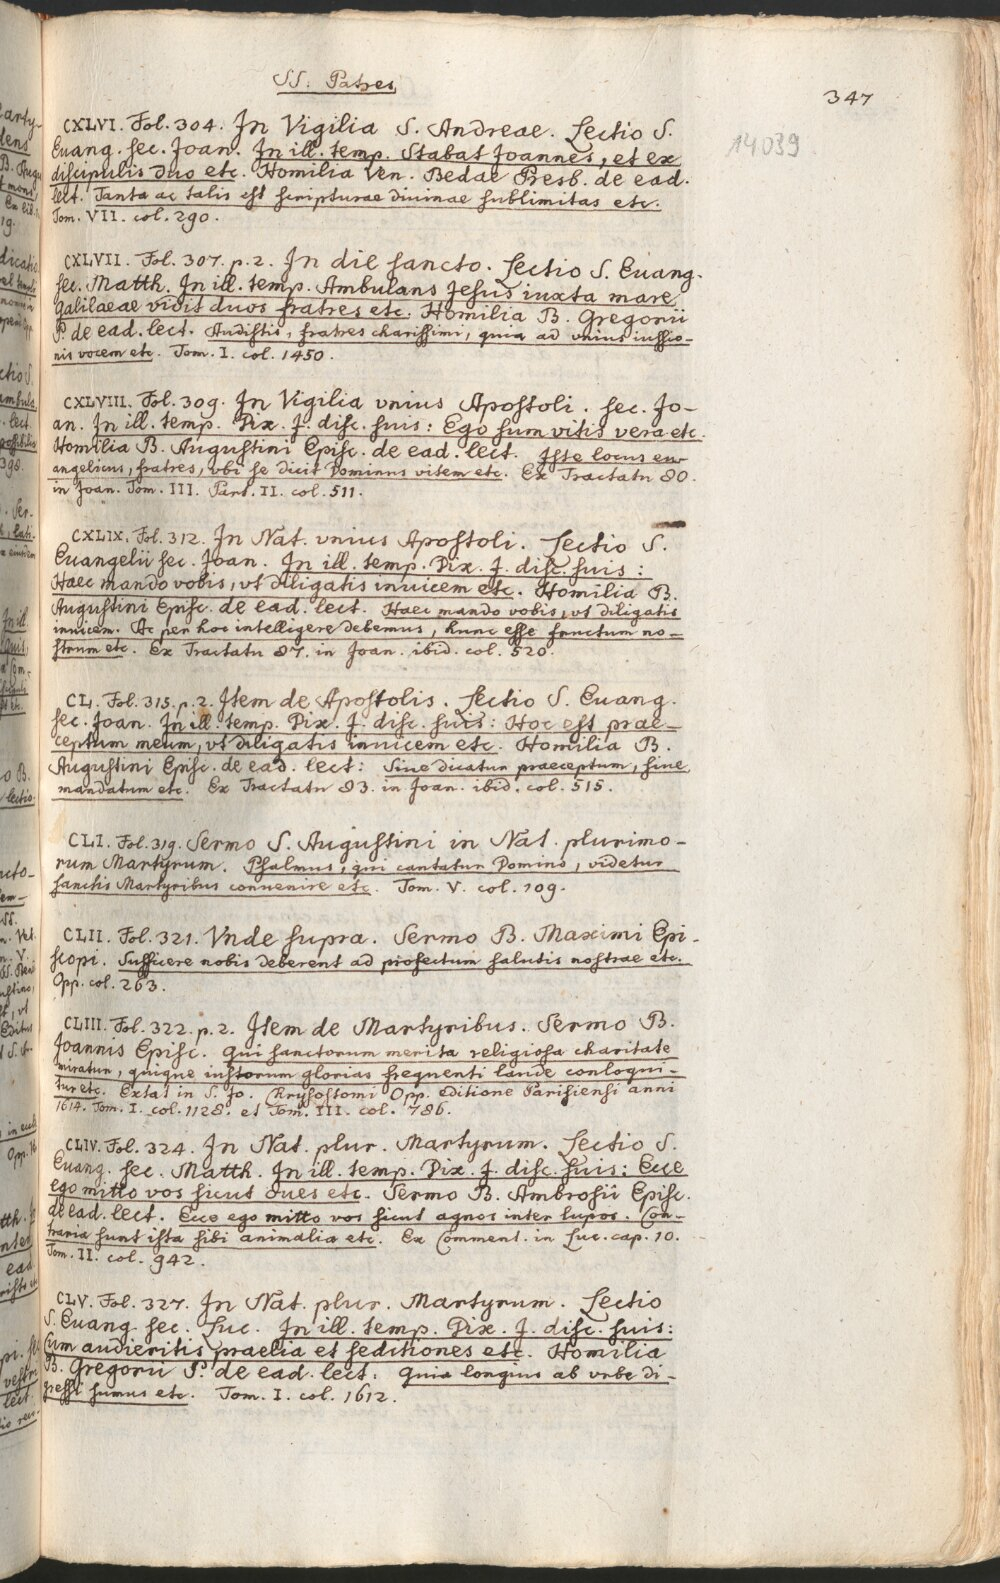 SS. Patres
347
14039
CXLVI. Fol. 304. In Vigilia S. Andreae. Lectio S.
Euang. sec. Joan. In ill. temp. Stabat Joannes, et ex
discipulis duo etc. Homilia Ven. Bedae Presb. de ead.
lect. Tanta ac talis est scripturae diuinae sublimitas etc.
Tom. VII. col. 290.
CXLVII. Fol. 307. p. 2. In die sancto. Lectio S. Euang.
sec. Matth. In ill. temp. Ambulans Jesus iuxta mare
Galilaeae vidit duos fratres etc. Homilia B. Gregorii
P. de ead. lect. Audistis, fratres charissimi, quia ad vnius iussio-
nis vocem etc. Tom. I. col. 1450.
CXLVIII. Fol. 309. In Vigilia vnius Apostoli. sec. Jo-
an. In ill. temp. Dix. J. disc. suis: Ego sum vitis vera etc.
Homilia B. Augustini Episc. de ead. lect. Iste locus eu-
angelicus, fratres, vbi se dicit Dominus vitem etc. Ex Tractatu 80.
in Joan. Tom. III. Part. II. col. 511.
CXLIX. Fol. 312. In Nat. vnius Apostoli. Lectio S.
Euangelii sec. Joan. In ill. temp. Dix. J. disc. suis:
Haec mando vobis, vt diligatis inuicem etc. Homilia B.
Augustini Episc. de ead. lect. Haec mando vobis, vt diligatis
inuicem. Ac per hoc intelligere debemus, hunc esse fructum no-
strum etc. Ex Tractatu 87. in Joan. ibid. col. 520.
CL. Fol. 315. p. 2. Item de Apostolis. Lectio S. Euang.
sec. Joan. In ill. temp. Dix. J. disc. suis: Hoc est prae-
ceptum meum, vt diligatis inuicem etc. Homilia B.
Augustini Episc. de ead. lect: Siue dicatur praeceptum, siue
mandatum etc. Ex Tractatu 83. in Joan. ibid. col. 515.
CLI. Fol. 319. Sermo S. Augustini in Nat. plurimo-
rum Martyrum. Psalmus, qui cantatur Domino, videtur
sanctis Martyribus conuenire etc. Tom. V. col. 109.
CLII. Fol. 321. Vnde supra. Sermo B. Maximi Epi-
scopi. Sufficere nobis deberent ad profectum salutis nostrae etc.
Opp. col. 263.
CLIII. Fol. 322. p. 2. Item de Martyribus. Sermo B.
Joannis Episc. Qui sanctorum merita religiosa charitate
miratur, quique iustorum glorias frequenti laude conloqui-
tur etc. Extat in S. Jo. Chrysostomi Opp. editione Parisiensi anni
1614. Tom. I. col. 1128. et Tom. III. col. 786.
CLIV. Fol. 324. In Nat. plur. Martyrum. Lectio S.
Euang. sec. Matth. In ill. temp. Dix. J. disc. suis: Ecce
ego mitto vos sicut oues etc. Sermo B. Ambrosii Episc.
de ead. lect. Ecce ego mitto vos sicut agnos inter lupos. Con-
traria sunt ista sibi animalia etc. Ex Comment. in Luc. cap. 10.
Tom. II. col. 942.
CLV. Fol. 327. In Nat. plur. Martyrum. Lectio
S. Euang. sec. Luc. In ill. temp. Dix. J. disc. suis:
Cum audieritis praelia et seditiones etc. Homilia
B. Gregorii P. de ead. lect. Quia longius ab vrbe di-
gressi sumus etc. Tom. I. col. 1612.